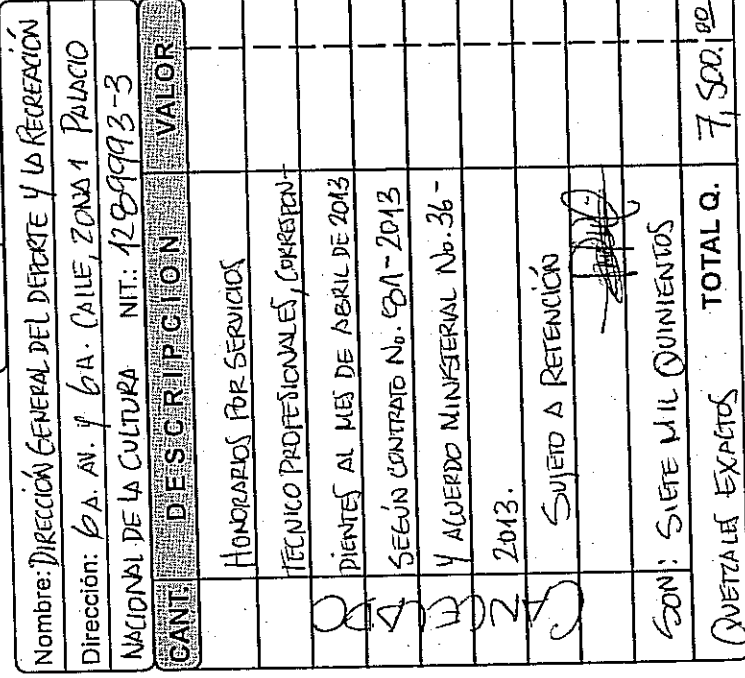 Nombre: DIRECCIÓN GENERAL DEL DEPORTE Y LA RECREACIÓN
Dirección: 6A. AV. Y 6A. CALLE, ZONA 1 PALACIO
NACIONAL DE LA CULTURA NIT.: 1289993-3
CANT. DESCRIPCION VALOR
HONORARIOS POR SERVICIOS
TECNICO PROFESIONALES, CORRESPON-
DIENTES AL MES DE ABRIL DE 2013
SEGÚN CONTRATO No. 981-2013
Y ACUERDO MINISTERIAL No. 36-
2013.
SUJETO A RETENCIÓN
SON: SIETE MIL QUINIENTOS
QUETZALES EXACTOS TOTAL Q. 7,500.00